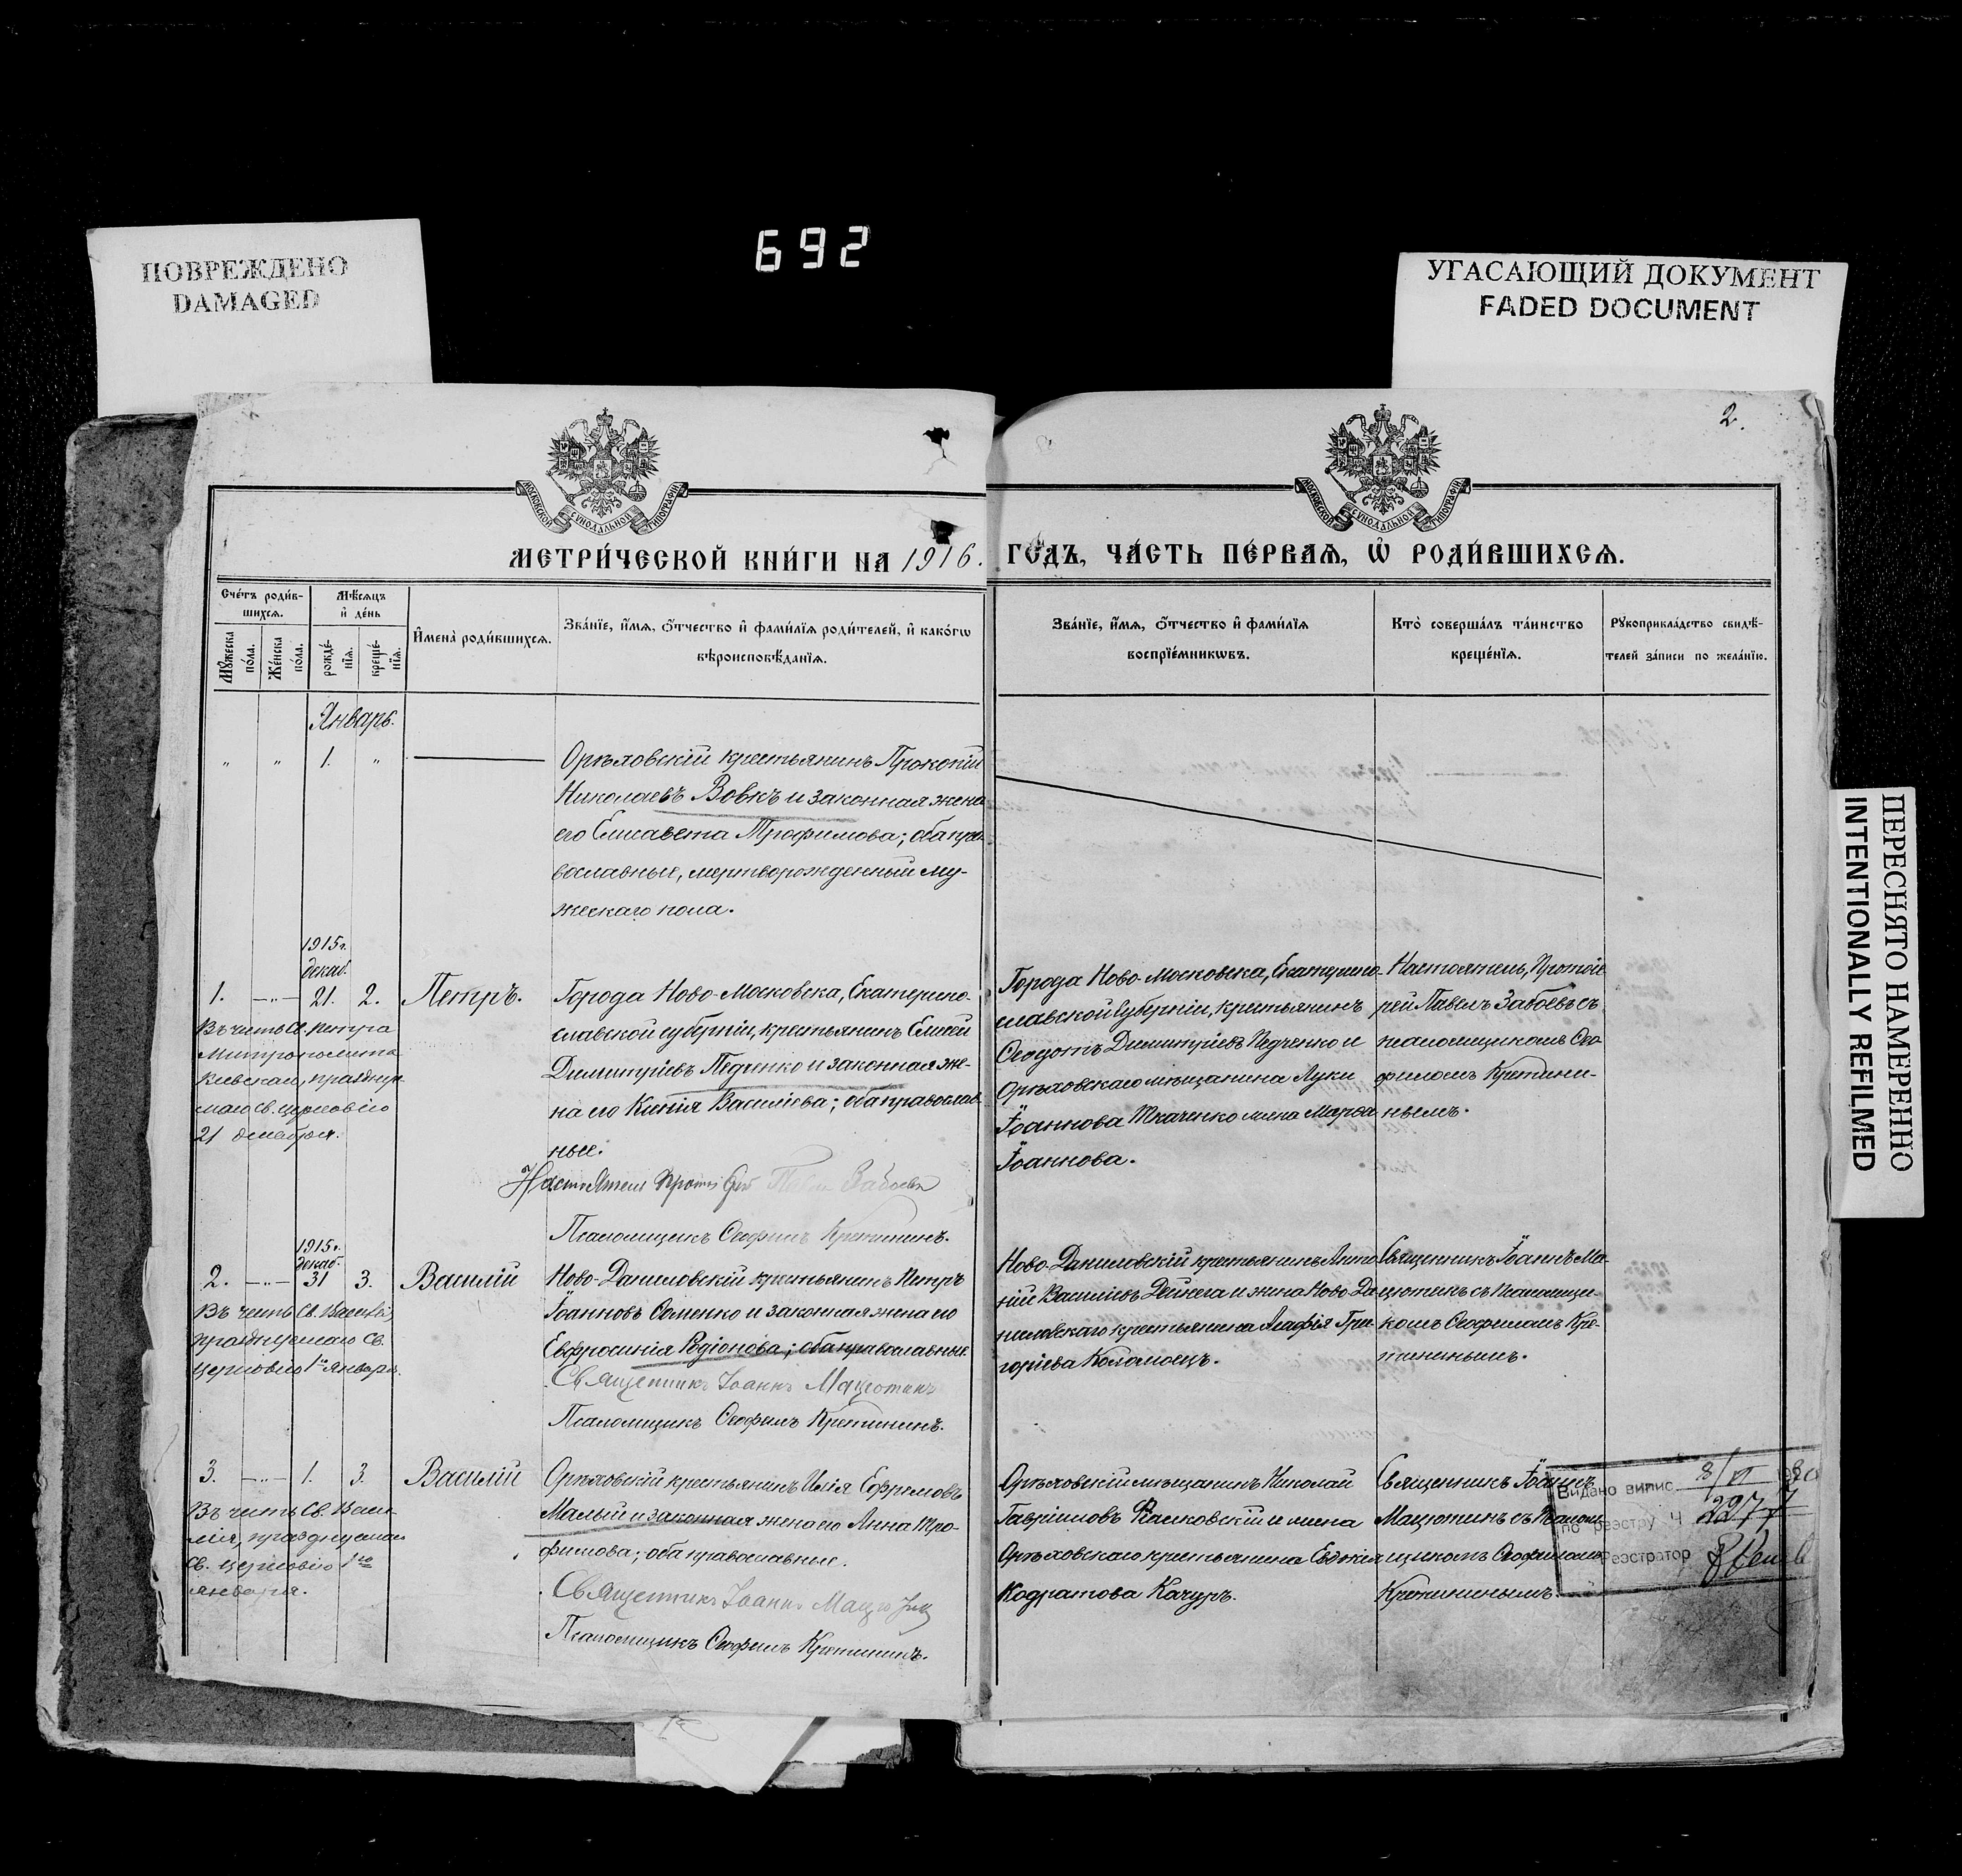 692
ПОВРЕЖДЕНО
DAMAGED
УГАСАЮЩИЙ ДОКУМЕНТ
FADED DOCUMENT
ПЕРЕСНЯТО НАМЕРЕННО
INTENTIONALLY REFILMED
2.
МОСКОВСКОЙ СѴНОДАЛЬНОЙ ТИПОГРАФІИ
МОСКОВСКОЙ СѴНОДАЛЬНОЙ ТИПОГРАФІИ
МЕТРИ́ЧЕСКОЙ КНИ́ГИ НА 1916. ГО́ДЪ, ЧА́СТЬ ПЕ́РВАѦ, Ѡ҆ РОДИ́ВШИХСѦ.
Сче́тъ роди́в-
шихсѧ.
Мѣ́сѧцъ
и҆ де́нь
Мꙋ́жеска
по́ла.
Же́нска
по́ла.
рожде́-
нїѧ.
креще́-
нїѧ.
И҆мена̀ роди́вшихсѧ.
Зва́нїе, и҆́мѧ, ѻ҆́тчество и҆ фами́лїѧ роди́телей, и҆ како́гѡ
вѣроисповѣ́данїѧ.
Зва́нїе, и҆́мѧ, ѻ҆́тчество и҆ фами́лїѧ
воспрїе́мникѡвъ.
Кто̀ соверша́лъ та́инство
креще́нїѧ.
Рꙋкоприкла́дство свидѣ́-
телей за́писи по жела́нїю.
Январь.
" " 1. "
Орѣховскій крестьянинъ Прокопій
Николаевъ Вовкъ и законная жена
его Елисавета Трофимова; оба пра-
вославные, мертворожденный му-
жескаго пола.
1915 г.
декаб.
1. —"— 21. 2. Петръ.
Въ честь Св. Петра
Митрополита
Кіевскаго, празднуе-
маго св. церковію
21 декабря.
Города Ново-Московска, Екатерино-
славской губерніи, крестьянинъ Елисей
Димитріевъ Педченко и законная же-
на его Ксенія Васильева; оба православ-
ные.
Настоятель Протоіерей Павелъ Забоевъ
Псаломщикъ Ѳеофилъ Кретининъ.
Города Ново-Московска, Екатерино-
славской губерніи, крестьянинъ
Ѳеодотъ Димитріевъ Педченко и
Орѣховскаго мѣщанина Луки
Іоаннова Ткаченко жена Марѳа
Іоаннова.
Настоятель, Протоіе-
рей Павелъ Забоевъ съ
псаломщикомъ Ѳео-
филомъ Кретини-
нымъ.
1915 г.
декаб.
2. —"— 31 3. Василій
Въ честь Св. Василія,
празднуемаго Св.
церковію 1го Января.
Ново-Даниловскій крестьянинъ Петръ
Іоанновъ Соменко и законная жена его
Евфросинія Родіонова; оба православные.
Священникъ Іоаннъ Мацютинъ
Псаломщикъ Ѳеофилъ Кретининъ.
Ново-Даниловскій крестьянинъ Анто-
ній Васильевъ Дейнега и жена Ново-Да-
ниловскаго крестьянина Агафія Гри-
горіева Коломоецъ.
Священникъ Іоаннъ Ма-
цютинъ съ Псаломщи-
комъ Ѳеофиломъ Кре-
тининымъ.
3. —"— 1. 3. Василій
Въ честь Св. Васи-
лія, празднуемаго
Св. церковію 1го
января.
Орѣховскій крестьянинъ Илія Ефремовъ
Малый и законная жена его Анна Тро-
фимова; оба православные.
Священникъ Іоаннъ
Псаломщикъ Ѳеофилъ Кретининъ.
Орѣховскій мѣщанинъ Николай
Гавріиловъ и жена
Орѣховскаго крестьянина Евдокія
Кодратова Качуръ.
Священникъ Іоаннъ
Мацютинъ съ Псалом-
щикомъ Ѳеофиломъ
Кретининымъ.
Видано випис 8/VI
по реэстру Ч 2977
Реэстратор